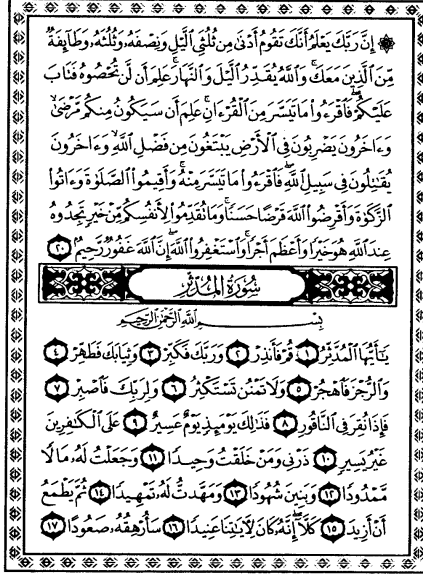 ۞ إِنَّ رَبَّكَ يَعْلَمُ أَنَّكَ تَقُومُ أَدْنَىٰ مِن ثُلُثَيِ ٱلَّيْلِ وَنِصْفَهُۥ وَثُلُثَهُۥ وَطَآئِفَةٌ
مِّنَ ٱلَّذِينَ مَعَكَۚ وَٱللَّهُ يُقَدِّرُ ٱلَّيْلَ وَٱلنَّهَارَۚ عَلِمَ أَن لَّن تُحْصُوهُ فَتَابَ
عَلَيْكُمْۖ فَٱقْرَءُوا۟ مَا تَيَسَّرَ مِنَ ٱلْقُرْءَانِۚ عَلِمَ أَن سَيَكُونُ مِنكُم مَّرْضَىٰۙ
وَءَاخَرُونَ يَضْرِبُونَ فِى ٱلْأَرْضِ يَبْتَغُونَ مِن فَضْلِ ٱللَّهِۙ وَءَاخَرُونَ
يُقَٰتِلُونَ فِى سَبِيلِ ٱللَّهِۖ فَٱقْرَءُوا۟ مَا تَيَسَّرَ مِنْهُۚ وَأَقِيمُوا۟ ٱلصَّلَوٰةَ وَءَاتُوا۟
ٱلزَّكَوٰةَ وَأَقْرِضُوا۟ ٱللَّهَ قَرْضًا حَسَنًاۚ وَمَا تُقَدِّمُوا۟ لِأَنفُسِكُم مِّنْ خَيْرٍ تَجِدُوهُ
عِندَ ٱللَّهِ هُوَ خَيْرًا وَأَعْظَمَ أَجْرًاۚ وَٱسْتَغْفِرُوا۟ ٱللَّهَۖ إِنَّ ٱللَّهَ غَفُورٌ رَّحِيمٌۢ ٢٠
سُورَةُ المُدَّثِّرِ
بِسْمِ ٱللَّهِ ٱلرَّحْمَٰنِ ٱلرَّحِيمِ
يَٰٓأَيُّهَا ٱلْمُدَّثِّرُ ١ قُمْ فَأَنذِرْ ٢ وَرَبَّكَ فَكَبِّرْ ٣ وَثِيَابَكَ فَطَهِّرْ ٤
وَٱلرُّجْزَ فَٱهْجُرْ ٥ وَلَا تَمْنُن تَسْتَكْثِرُ ٦ وَلِرَبِّكَ فَٱصْبِرْ ٧
فَإِذَا نُقِرَ فِى ٱلنَّاقُورِ ٨ فَذَٰلِكَ يَوْمَئِذٍ يَوْمٌ عَسِيرٌ ٩ عَلَى ٱلْكَٰفِرِينَ
غَيْرُ يَسِيرٍ ١٠ ذَرْنِى وَمَنْ خَلَقْتُ وَحِيدًا ١١ وَجَعَلْتُ لَهُۥ مَالًا
مَّمْدُودًا ١٢ وَبَنِينَ شُهُودًا ١٣ وَمَهَّدتُّ لَهُۥ تَمْهِيدًا ١٤ ثُمَّ يَطْمَعُ
أَنْ أَزِيدَ ١٥ كَلَّآۖ إِنَّهُۥ كَانَ لِءَايَٰتِنَا عَنِيدًا ١٦ سَأُرْهِقُهُۥ صَعُودًا ١٧